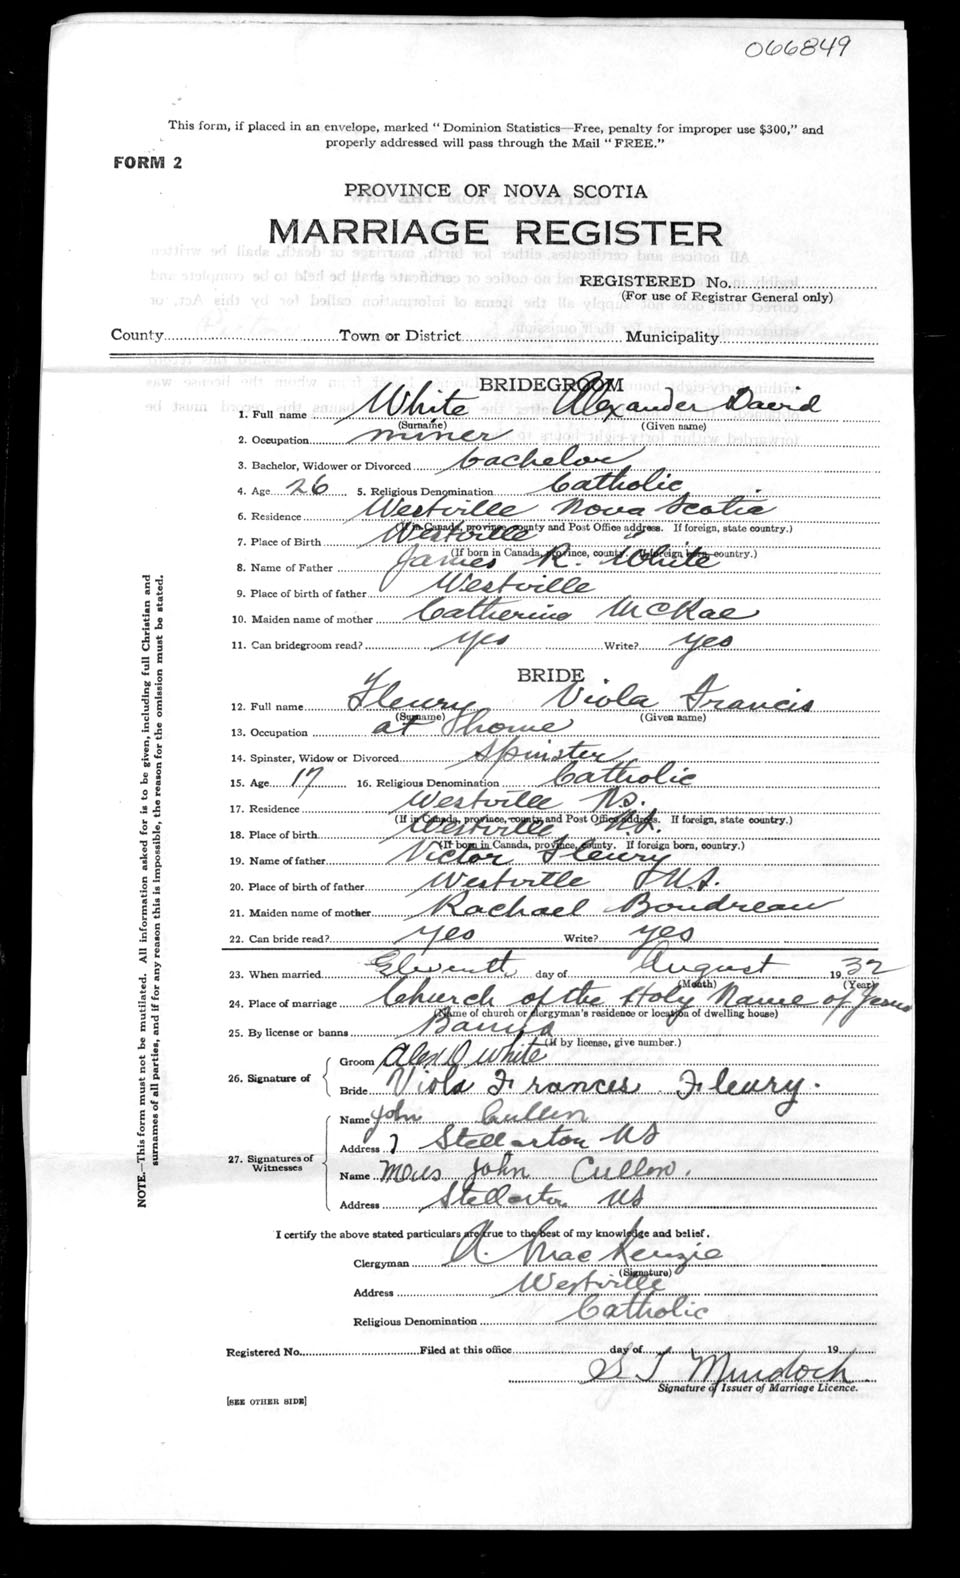 066849
This form, if placed in an envelope, marked " Dominion Statistics—Free, penalty for improper use $300," and
properly addressed will pass through the Mail " FREE."
FORM 2
PROVINCE OF NOVA SCOTIA
MARRIAGE REGISTER
REGISTERED No.
(For use of Registrar General only)
County Town or District Municipality
BRIDEGROOM
1. Full name White Alexander David
(Surname) (Given name)
2. Occupation miner
3. Bachelor, Widower or Divorced bachelor
4. Age 26 5. Religious Denomination Catholic
6. Residence Westville Nova Scotia
(If in Canada, province, county and Post Office address. If foreign, state country.)
7. Place of Birth Westville
(If born in Canada, province, county. If foreign born, country.)
8. Name of Father James R. White
9. Place of birth of father Westville
10. Maiden name of mother Catherine McRae
11. Can bridegroom read? yes Write? yes
BRIDE
12. Full name Fleury Viola Francis
(Surname) (Given name)
13. Occupation at home
14. Spinster, Widow or Divorced Spinster
15. Age 17 16. Religious Denomination Catholic
17. Residence Westville N.S.
(If in Canada, province, county and Post Office address. If foreign, state country.)
18. Place of birth Westville N.S.
(If born in Canada, province, county. If foreign born, country.)
19. Name of father Victor Fleury
20. Place of birth of father Westville N.S.
21. Maiden name of mother Rachael Boudreau
22. Can bride read? yes Write? yes
23. When married Eleventh day of August 1932
(Month) (Year)
24. Place of marriage Church of the Holy Name of Jesus
(Name of church or clergyman's residence or location of dwelling house)
25. By license or banns Banns
(If by license, give number.)
26. Signature of Groom Alex D White
Bride Viola Frances Fleury.
27. Signatures of Witnesses
Name John Cullen
Address Stellarton NS
Name Mrs John Cullen.
Address Stellarton NS
I certify the above stated particulars are true to the best of my knowledge and belief.
Clergyman A. MacKenzie
(Signature)
Address Westville
Religious Denomination Catholic
Registered No. Filed at this office day of 19
S T Murdoch
Signature of Issuer of Marriage Licence.
[SEE OTHER SIDE]
NOTE.—This form must not be mutilated. All information asked for is to be given, including full Christian and
surnames of all parties, and if for any reason this is impossible, the reason for the omission must be stated.